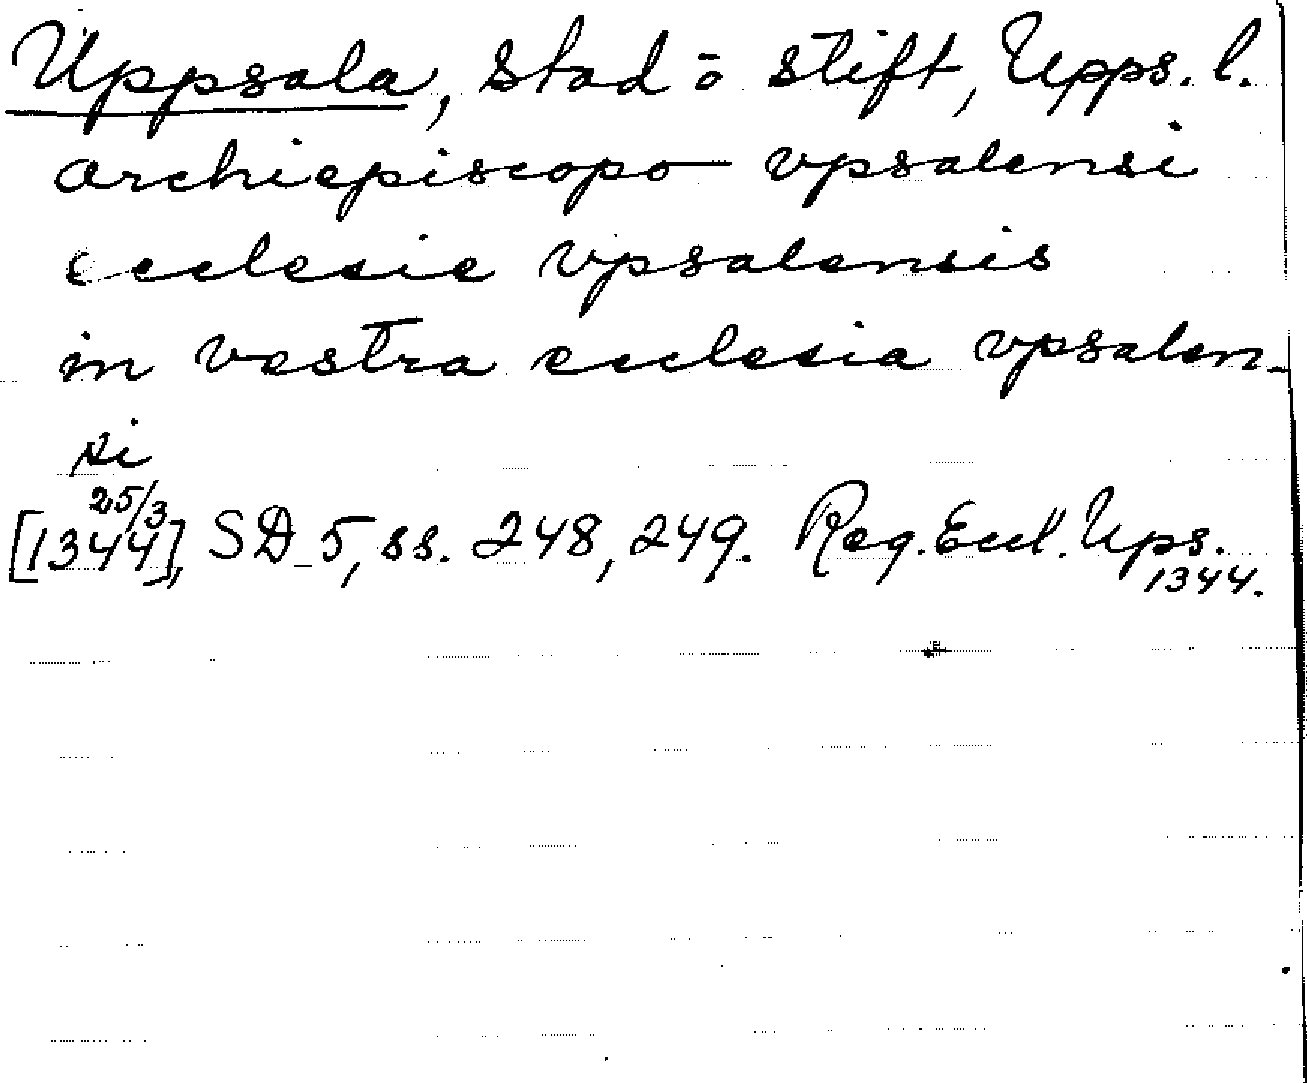 Uppsala, stad o stift, Upps. l.
archiepiscopo vpsalensi
ecclesie vpsalensis
in vestra ecclesia vpsalen-
si
25/3
[1344], SD 5, ss. 248, 249. Reg. Eccl. Ups.
1344.